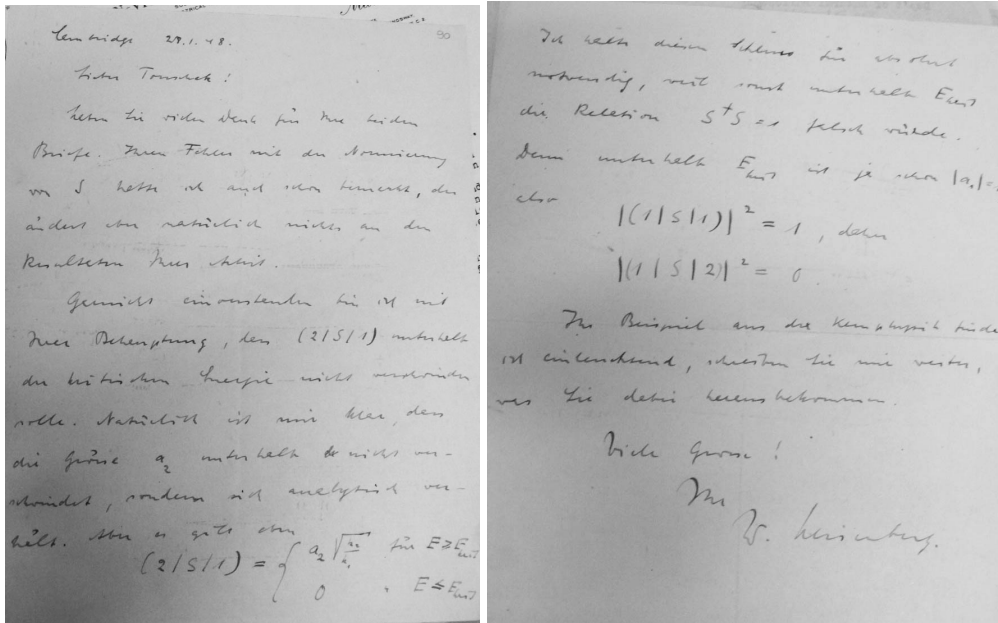 Cambridge 28.1.48.
90
Lieber Touschek!
haben Sie vielen Dank für Ihre beiden
Briefe. Ihren Fehler mit der Normierung
von S hatte ich auch schon bemerkt, das
ändert aber natürlich nichts an den
Resultaten Ihrer Arbeit.
Gar nicht einverstanden bin ich mit
Ihrer Behauptung, dass (2|S|1) unterhalb
der kritischen Energie nicht verschwinden
solle. Natürlich ist mir klar, dass
die Grösse a₂ unterhalb nicht ver-
schwindet, sondern sich analytisch ver-
hält. Aber es gilt eben
(2|S|1) = { a₂ √ für E ≥ E krit
0 " E ≤ E krit
Ich halte diesen Schluss für absolut
notwendig, weil sonst unterhalb E krit
die Relation S⁺S = 1 falsch würde.
Denn unterhalb E krit ist ja schon |a₁|=
also
|(1|S|1)|² = 1, daher
|(1|S|2)|² = 0.
Ihr Beispiel aus der Kernphysik finde
ich einleuchtend, schreiben Sie mir weiter,
was Sie dabei herausbekommen.
Viele Grüsse!
Ihr
W. Heisenberg.